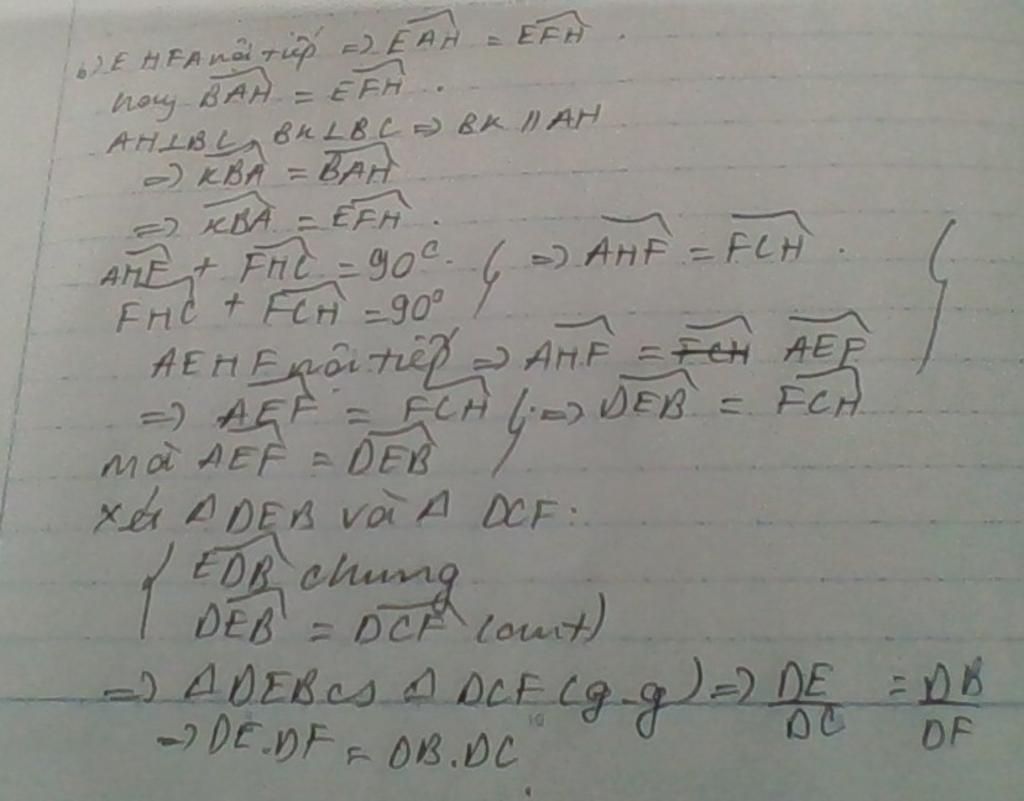 b) EHFA nội tiếp => EAH = EFH.
hay BAH = EFH.
AH⊥BC, BK⊥BC => BK // AH
=> KBA = BAH
=> KBA = EFH.
AHF + FHC = 90° } => AHF = FCH.
FHC + FCH = 90°
AEHF nội tiếp => AHF = AEF
=> AEF = FCH } => DEB = FCH
mà AEF = DEB
xét Δ DEB và Δ DCF:
{ EDB chung
DEB = DCF (cmt)
=> Δ DEB ∽ Δ DCF (g-g) => DE/DC = DB/DF
=> DE.DF = DB.DC